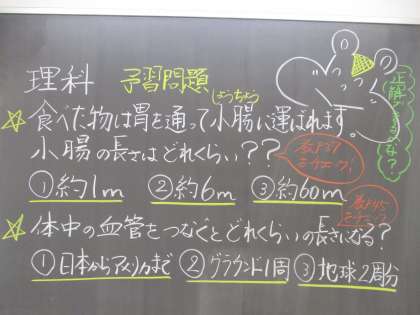 理科 予習問題
正解できるかな?
しょうちょう
☆食べた物は胃を通って小腸に運ばれます。
小腸の長さはどれくらい??
①約1m ②約6m ③約60m
☆体中の血管をつなぐとどれくらいの長さになる?
①日本からアメリカまで ②グラウンド1周 ③地球2周分